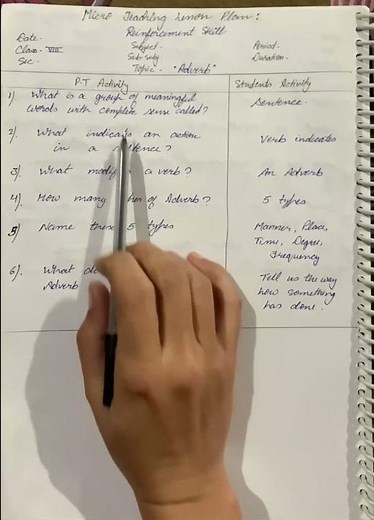 Micro Teaching Lesson Plan:
Reinforcement Skill
Date- Subject- Period-
Class- VIII Sub-unity Duration-
Sec- Topic- "Adverb"
P.T Activity Students Activity
1). What is a group of meaningful
words with complete sense called? Sentence.
2). What indicates an action
in a sentence? Verb indicates
3). What a verb? An Adverb
4). How many of Adverb? 5 types
5) Name these 5 types Manner, Place,
Time, Degree,
Frequency
6). What
Adverb Tell us the way
how something
has done.